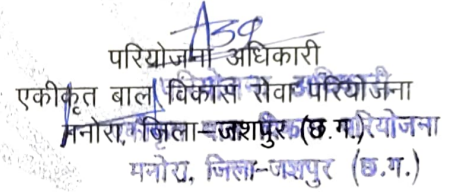 परियोजना अधिकारी
एकीकृत बाल विकास सेवा परियोजना
मनोरा, जिला-जशपुर (छ.ग.) परियोजना
मनोरा, जिला-जशपुर (छ.ग.)